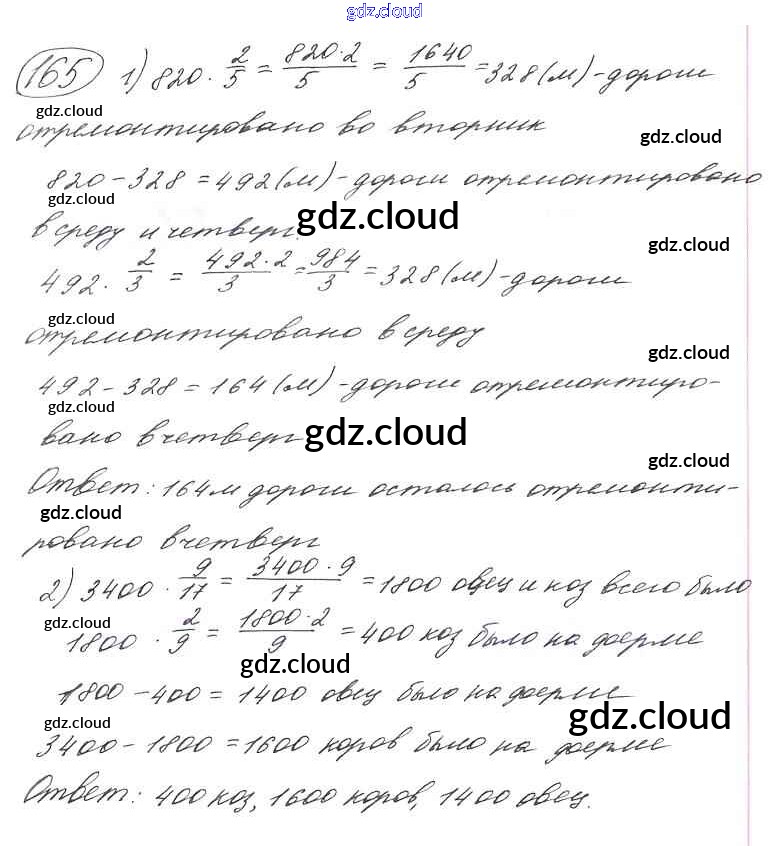 gdz.cloud
165 1) 820 · 2/5 = 820·2/5 = 1640/5 = 328 (м) - дороги
gdz.cloud
отремонтировано во вторник
gdz.cloud
820 - 328 = 492 (м) - дороги отремонтировано
gdz.cloud
gdz.cloud
в среду и четверг.
gdz.cloud
492 · 2/3 = 492·2/3 = 984/3 = 328 (м) - дороги
gdz.cloud
отремонтировано в среду
gdz.cloud
492 - 328 = 164 (м) - дороги отремонтиро-
gdz.cloud
вано в четверг
gdz.cloud
gdz.cloud
Ответ: 164 м дороги осталось отремонти-
gdz.cloud
ровано в четверг
2) 3400 · 9/17 = 3400·9/17 = 1800 овец и коз всего было
gdz.cloud
1800 · 2/9 = 1800·2/9 = 400 коз было на ферме
gdz.cloud
1800 - 400 = 1400 овец было на ферме
gdz.cloud
gdz.cloud
3400 - 1800 = 1600 коров было на ферме
Ответ: 400 коз, 1600 коров, 1400 овец.